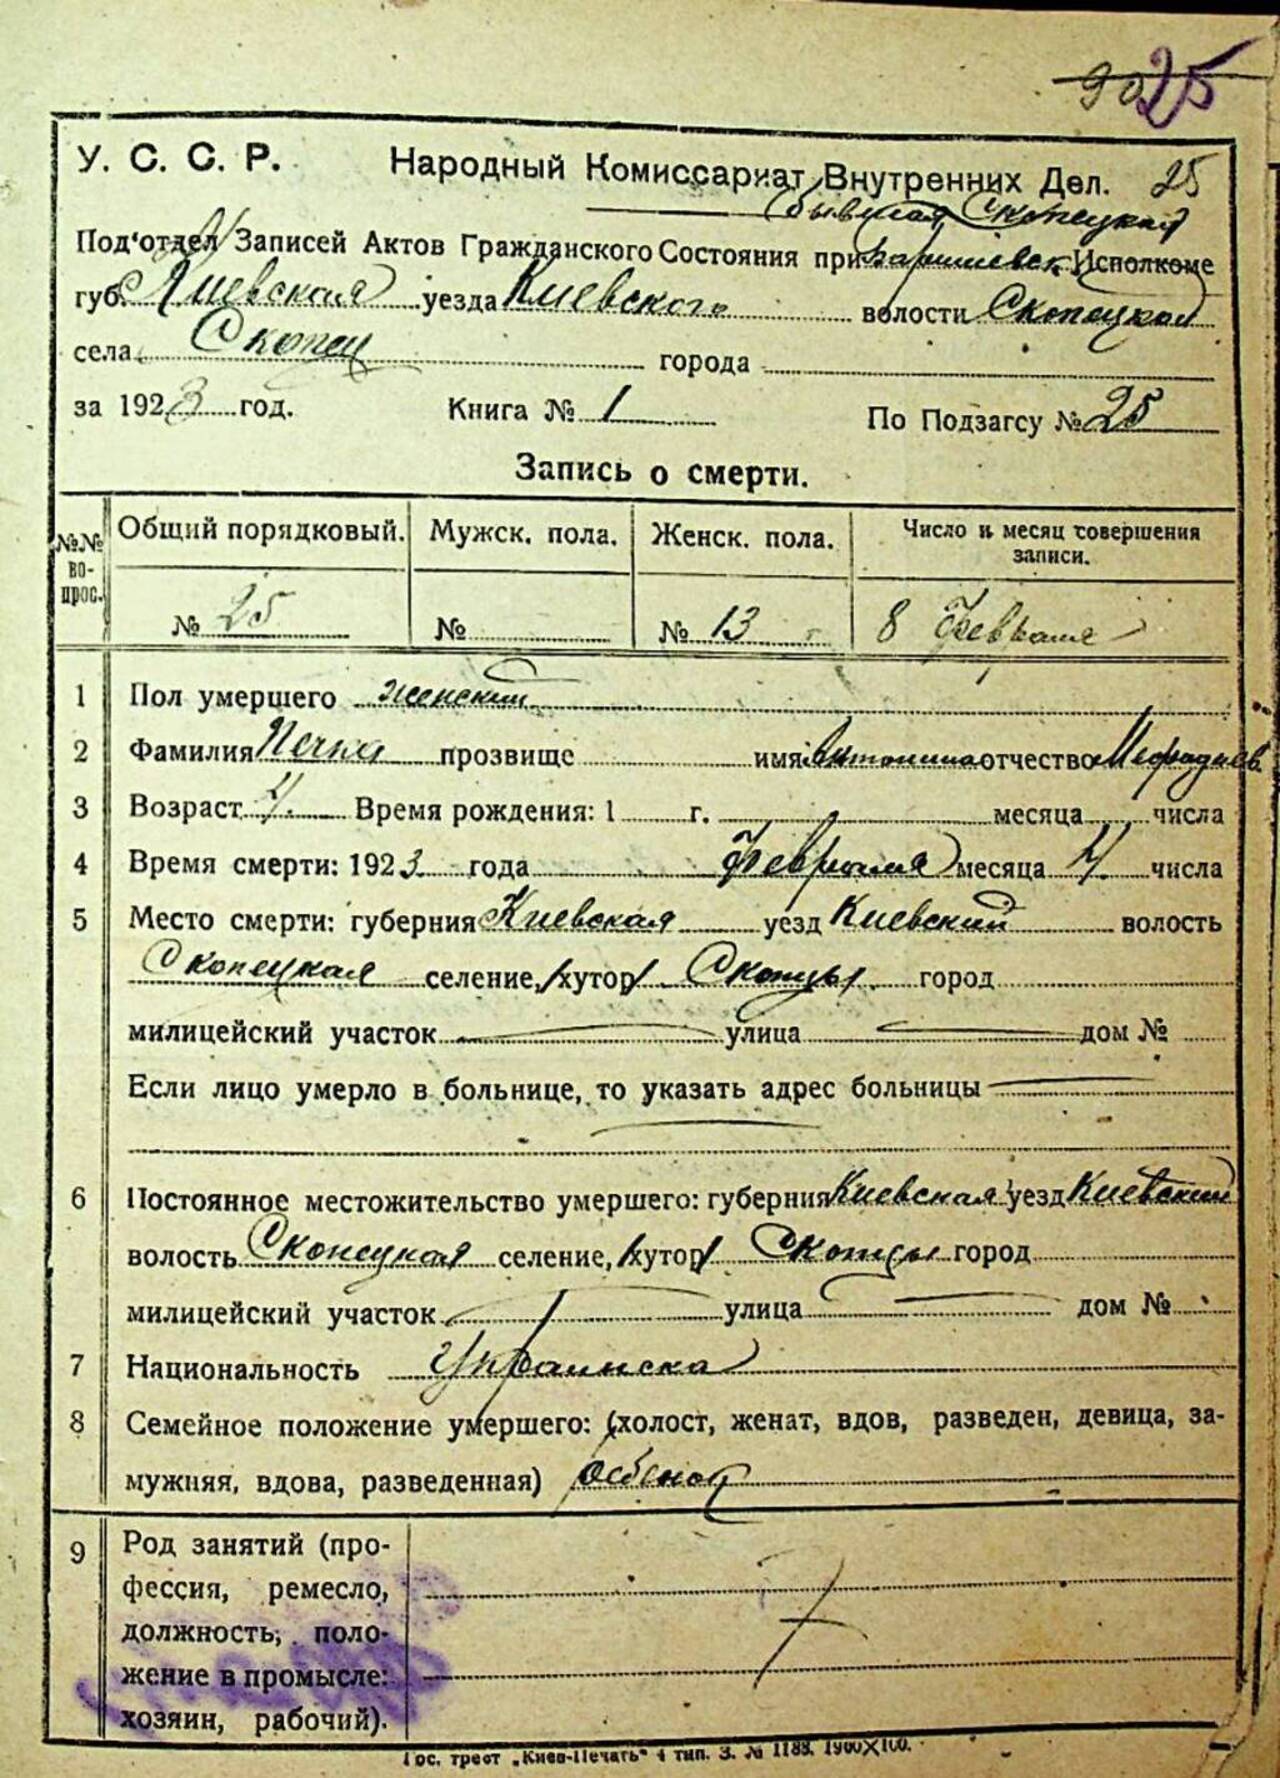 90 25
У. С. С. Р. Народный Комиссариат Внутренних Дел. 25
бывшая Скопецкая
Под'отдел Записей Актов Гражданского Состояния при Исполкоме
губ. Киевская уезда Киевского волости Скопецкой
села Скопец города
за 1923 год. Книга № 1 По Подзагсу № 25
Запись о смерти.
№№ вопрос. Общий порядковый. Мужск. пола. Женск. пола. Число и месяц совершения записи.
№ 25 № № 13 8 Февраля
1 Пол умершего женский
2 Фамилия прозвище имя Антонина отчество
3 Возраст 4. Время рождения: 1 г. месяца числа
4 Время смерти: 1923 года Февраля месяца 4. числа
5 Место смерти: губерния Киевская уезд Киевский волость
Скопецкая селение, /хутор/ Скопцы город
милицейский участок улица дом №
Если лицо умерло в больнице, то указать адрес больницы
6 Постоянное местожительство умершего: губерния Киевская уезд Киевский
волость Скопецкая селение, /хутор/ Скопцы город
милицейский участок улица дом №
7 Национальность Украинска
8 Семейное положение умершего: (холост, женат, вдов, разведен, девица, за-
мужняя, вдова, разведенная) ребенок
9 Род занятий (про-
фессия, ремесло,
должность, поло-
жение в промысле:
хозяин, рабочий).
Гос. трест „Киев-Печать" 4 тип. З. № 1188. 1900×100.